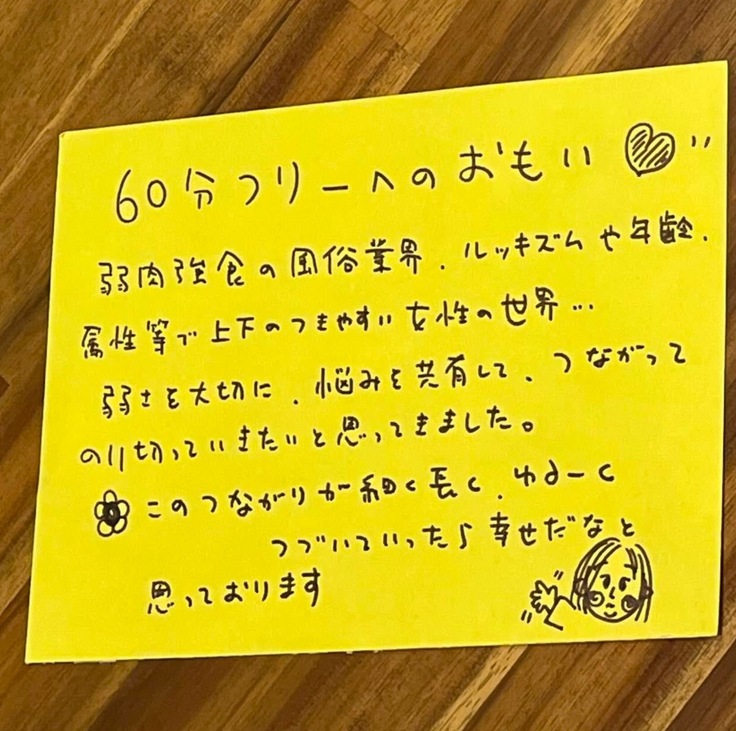 60分フリーへのおもい
弱肉強食の風俗業界、ルッキズムや年齢、
属性等で上下のつきやすい女性の世界…
弱さを大切に、悩みを共有して、つながって
のり切っていきたいと思ってきました。
このつながりが細く長く、ゆるーく
つづいていったら幸せだなと
思っております